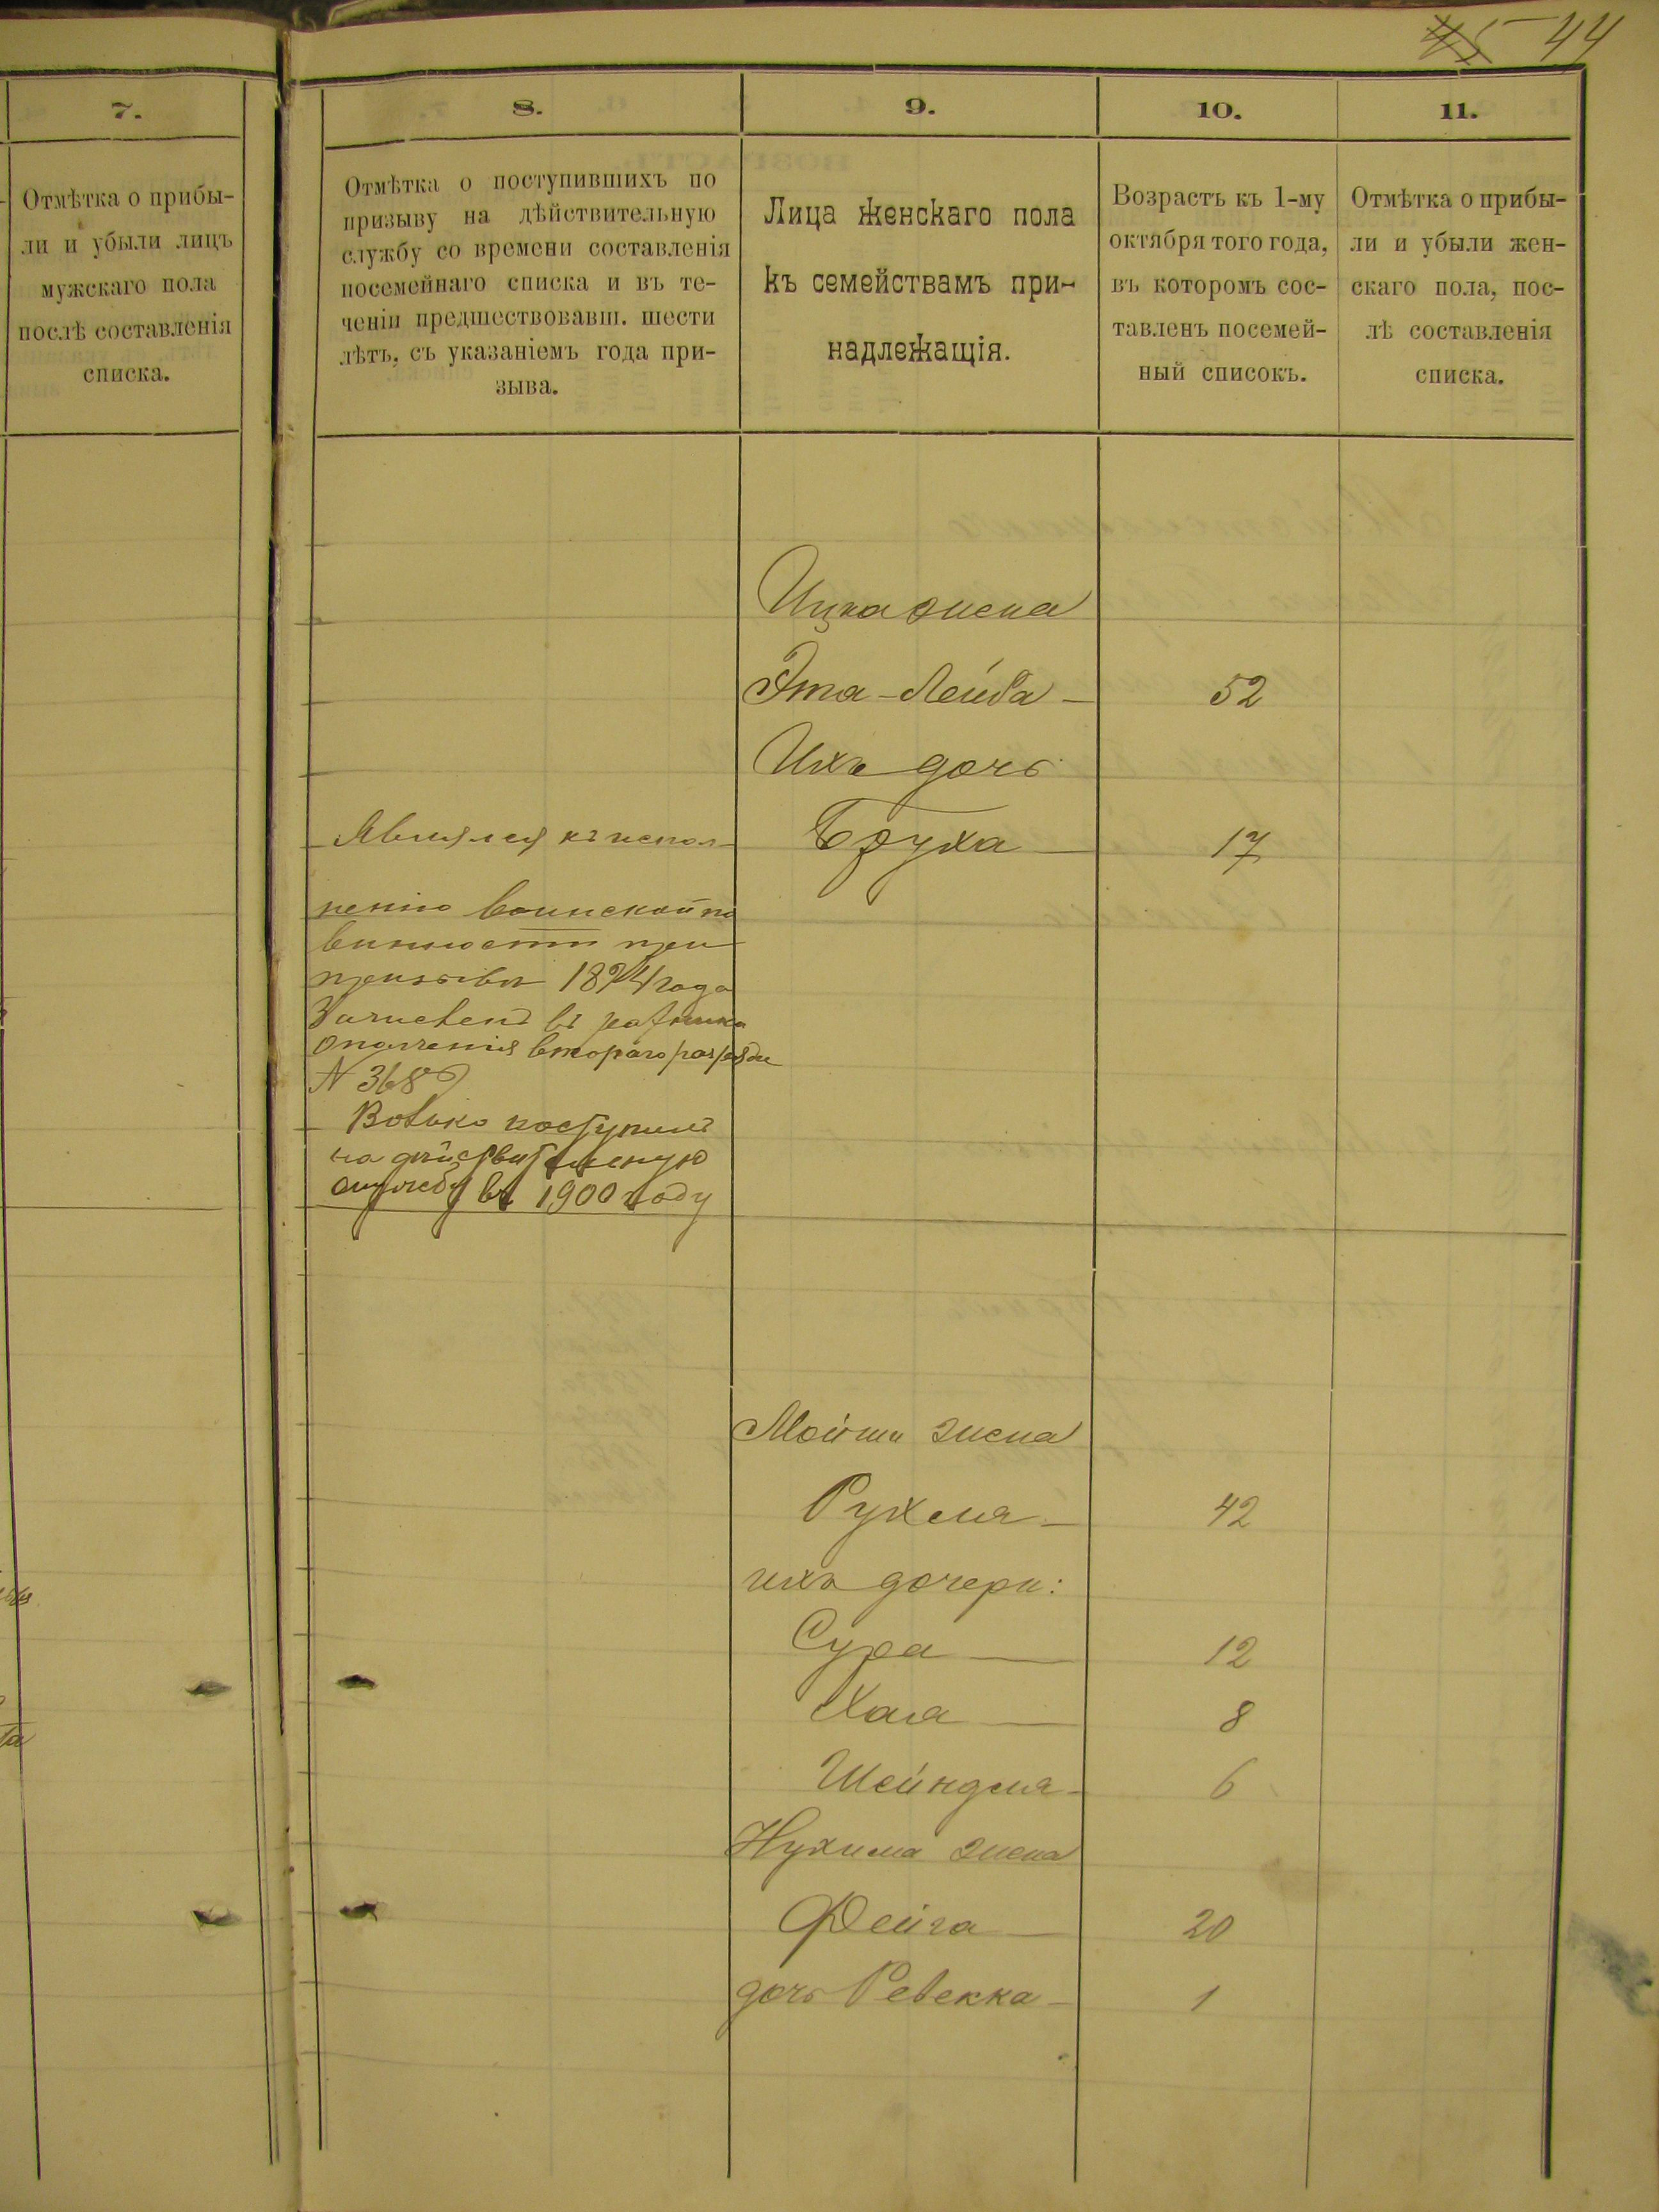 45 44
7.
Отмѣтка о прибы-
ли и убыли лицъ
мужскаго пола
послѣ составленія
списка.
8.
Отмѣтка о поступившихъ по
призыву на дѣйствительную
службу со времени составленія
посемейнаго списка и въ те-
ченіи предшествовавш. шести
лѣтъ, съ указаніемъ года при-
зыва.
9.
Лица женскаго пола
къ семействамъ при-
надлежащія.
10.
Возрастъ къ 1-му
октября того года,
въ которомъ сос-
тавленъ посемей-
ный списокъ.
11.
Отмѣтка о прибы-
ли и убыли жен-
скаго пола, пос-
лѣ составленія
списка.
Ицка жена
Эта-Лейба — 52
Ихъ дочь
Бруха — 17
Являлся къ испол-
ненію воинской по
винности при
призывѣ 1894 года
Зачисленъ въ ратники
ополченія второго разряда
N 368
Волько поступилъ
на дѣйствительную
службу въ 1900 году
Мойши жена
Рухля — 42
ихъ дочери:
Сура — 12
Хая — 8
Шейндля — 6
Нухима жена
Фейга — 20
дочь Ревекка — 1